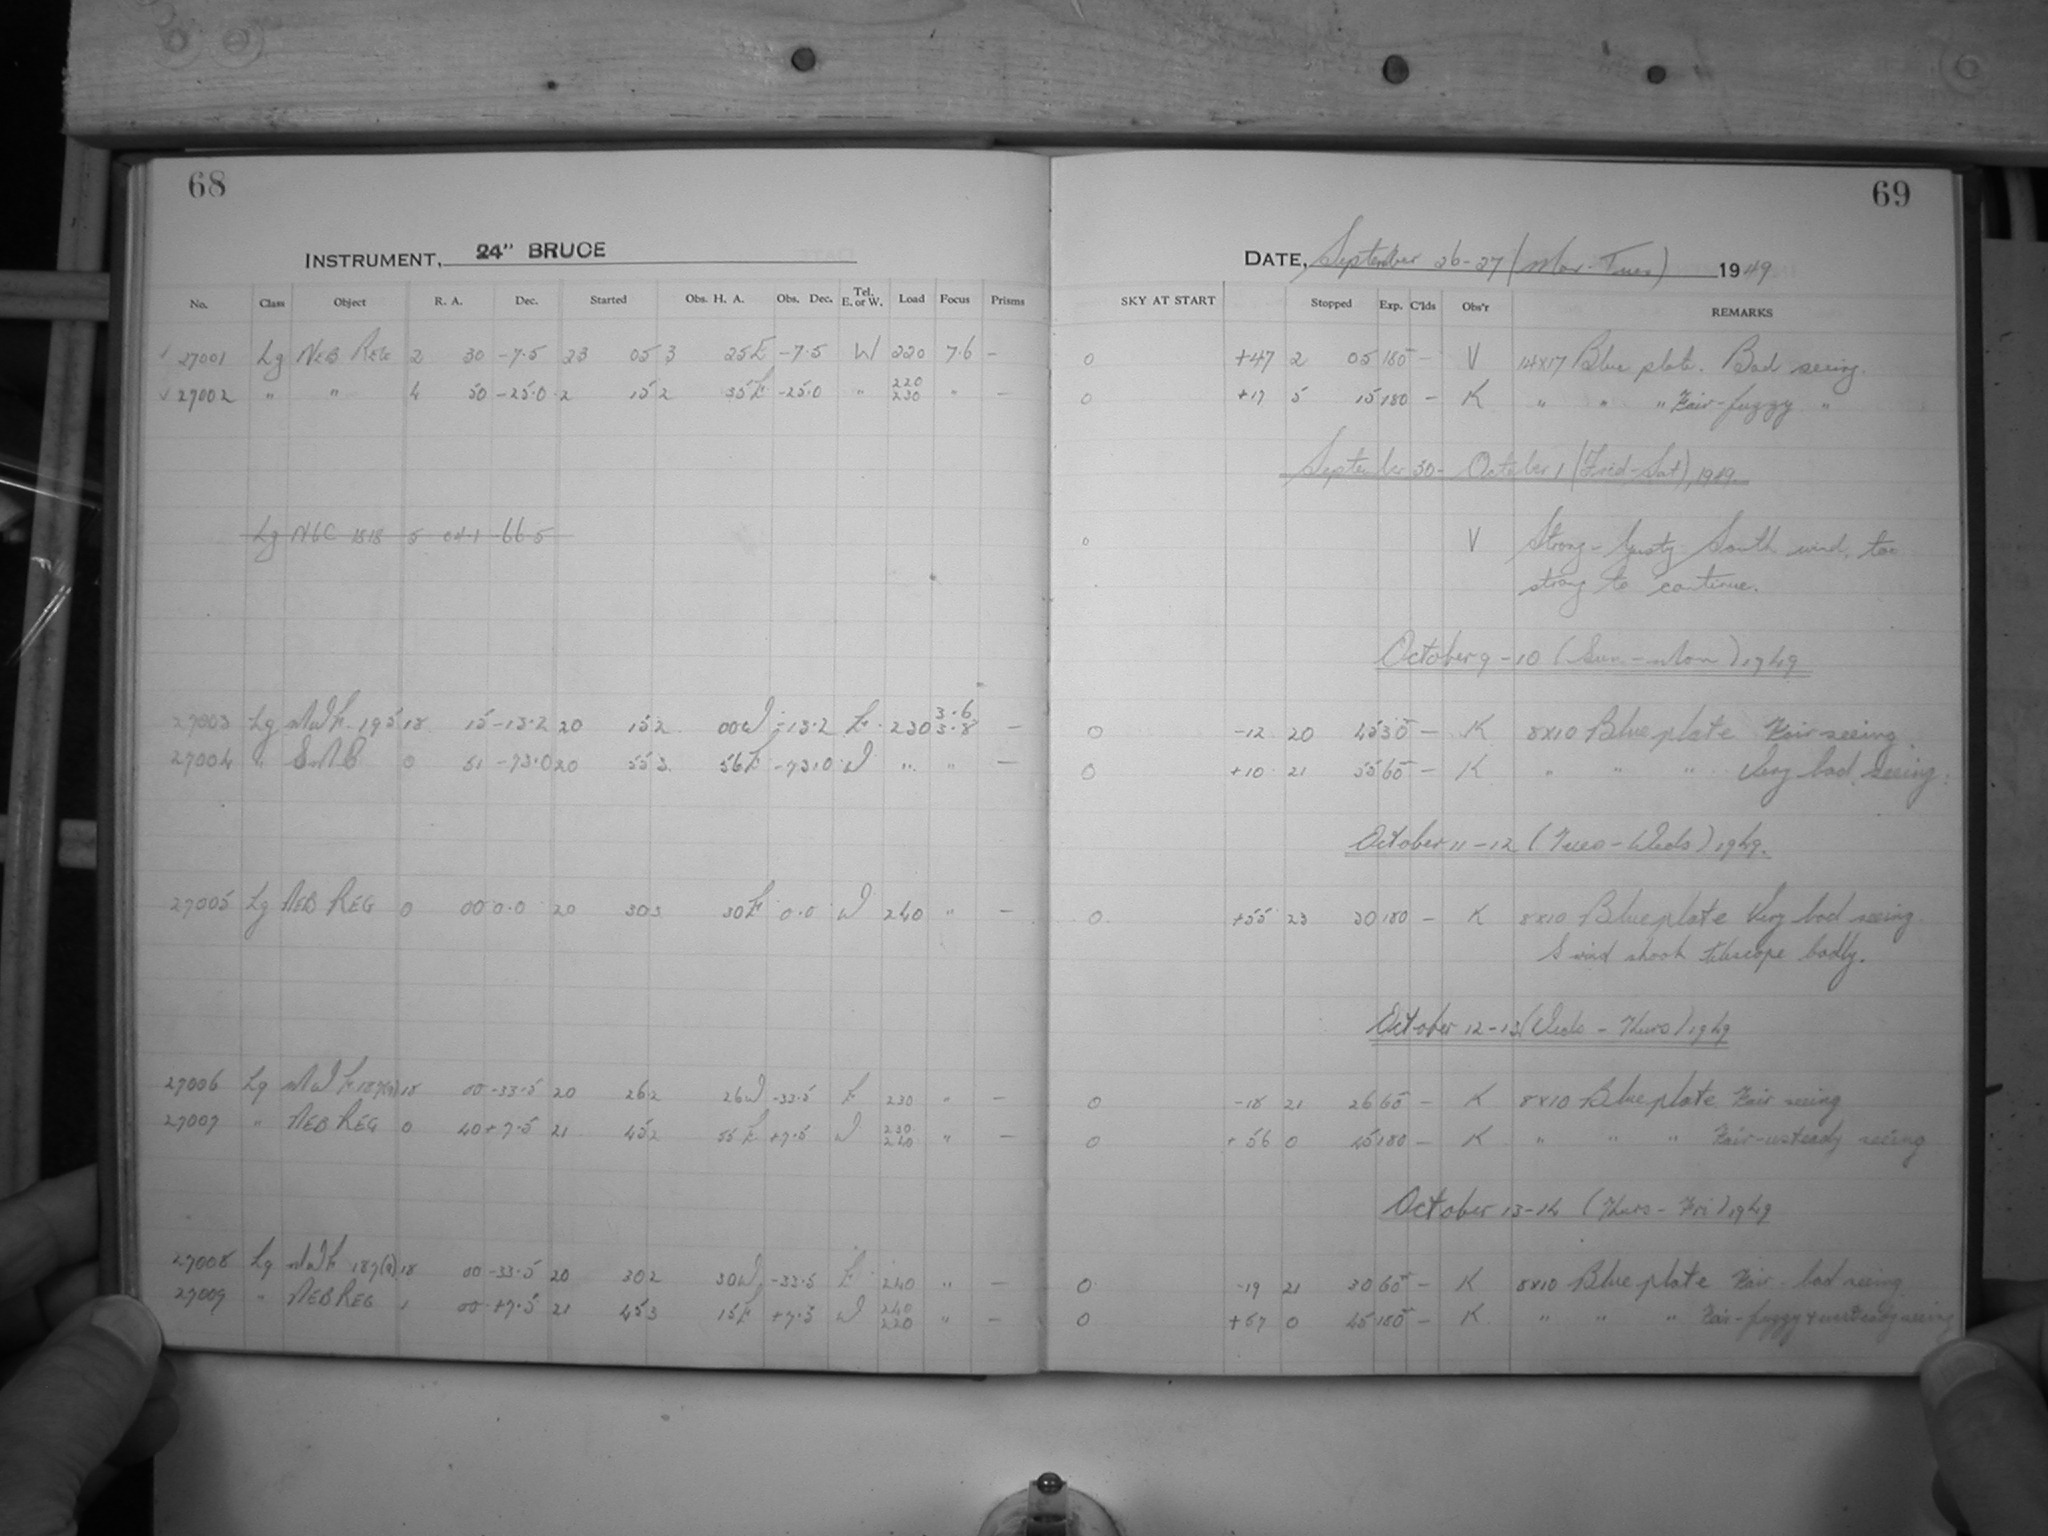 68
INSTRUMENT, 24" BRUCE
No. Class Object R. A. Dec. Started Obs. H. A. Obs. Dec. Tel. E. or W. Load Focus Prisms
27001 Lg NEB REG 2 30 -7.5 23 05 3 25E -7.5 W 220 7.6 -
27002 " " 4 50 -25.0 2 15 2 35E -25.0 " 220 230 " -
Lg NGC 1818 5 04.1 -66.5
27003 Lg MWF 195 18 15 -13.2 20 15 2 00W -13.2 E 230 3.6 3.8 -
27004 " SMC 0 51 -73.0 20 55 3 56E -73.0 W " " -
27005 Lg NEB REG 0 00 0.0 20 30 3 30E 0.0 W 240 " -
27006 Lg MWF 187(a) 18 00 -33.5 20 26 2 26W -33.5 E 230 " -
27007 " NEB REG 0 40 +7.5 21 45 2 55E +7.5 W 230 240 " -
27008 Lg MWF 187(a) 18 00 -33.5 20 30 2 30W -33.5 E 240 " -
27009 " NEB REG 1 00 +7.5 21 45 3 15E +7.5 W 240 220 " -
69
DATE, September 26-27 (Mon-Tues) 1949
SKY AT START Stopped Exp. C'lds Obs'r REMARKS
0 +47 2 05 180 - V 14x17 Blue plate. Bad seeing.
0 +17 5 15 180 - K " " " Fair-fuzzy "
September 30- October 1 (Frid-Sat), 1949.
0 V Strong-Gusty South wind, too
strong to continue.
October 9-10 (Sun-Mon) 1949
0 -12 20 45 30 - K 8x10 Blue plate Fair seeing.
0 +10 21 55 60 - K " " " Very bad seeing.
October 11-12 (Tues-Weds) 1949.
0 +55 23 30 180 - K 8x10 Blue plate Very bad seeing.
S wind shook telescope badly.
October 12-13 (Weds-Thurs) 1949
0 -18 21 26 60 - K 8x10 Blue plate Fair seeing
0 +56 0 45 180 - K " " " Fair-usteady seeing
October 13-14 (Thurs-Fri) 1949
0 -19 21 30 60 - K 8x10 Blue plate Fair-bad seeing
0 +57 0 45 180 - K " " " Fair-fuzzy + unsteady seeing